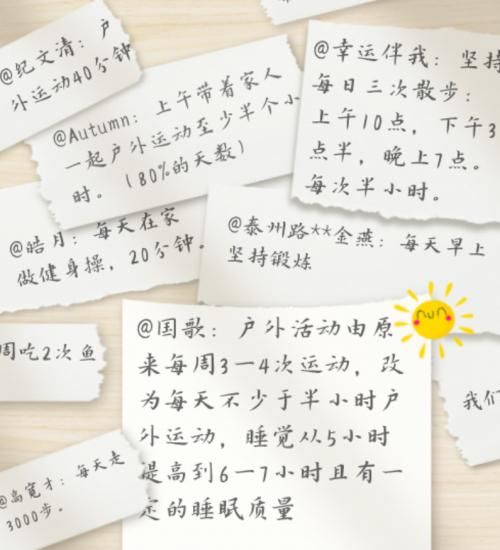 @纪文清：户
外运动40分钟
@Autumn：上午带着家人
一起户外运动至少半个小
时。（80%的天数）
@幸运伴我：坚持
每日三次散步：
上午10点，下午3
点半，晚上7点。
每次半小时。
@皓月：每天在家
做健身操，20分钟。
@泰州路**金燕：每天早上
坚持锻炼
周吃2次鱼
@国歌：户外活动由原
来每周3—4次运动，改
为每天不少于半小时户
外运动，睡觉从5小时
提高到6—7小时且有一
定的睡眠质量
我们
@高宽才：每天走
3000步。